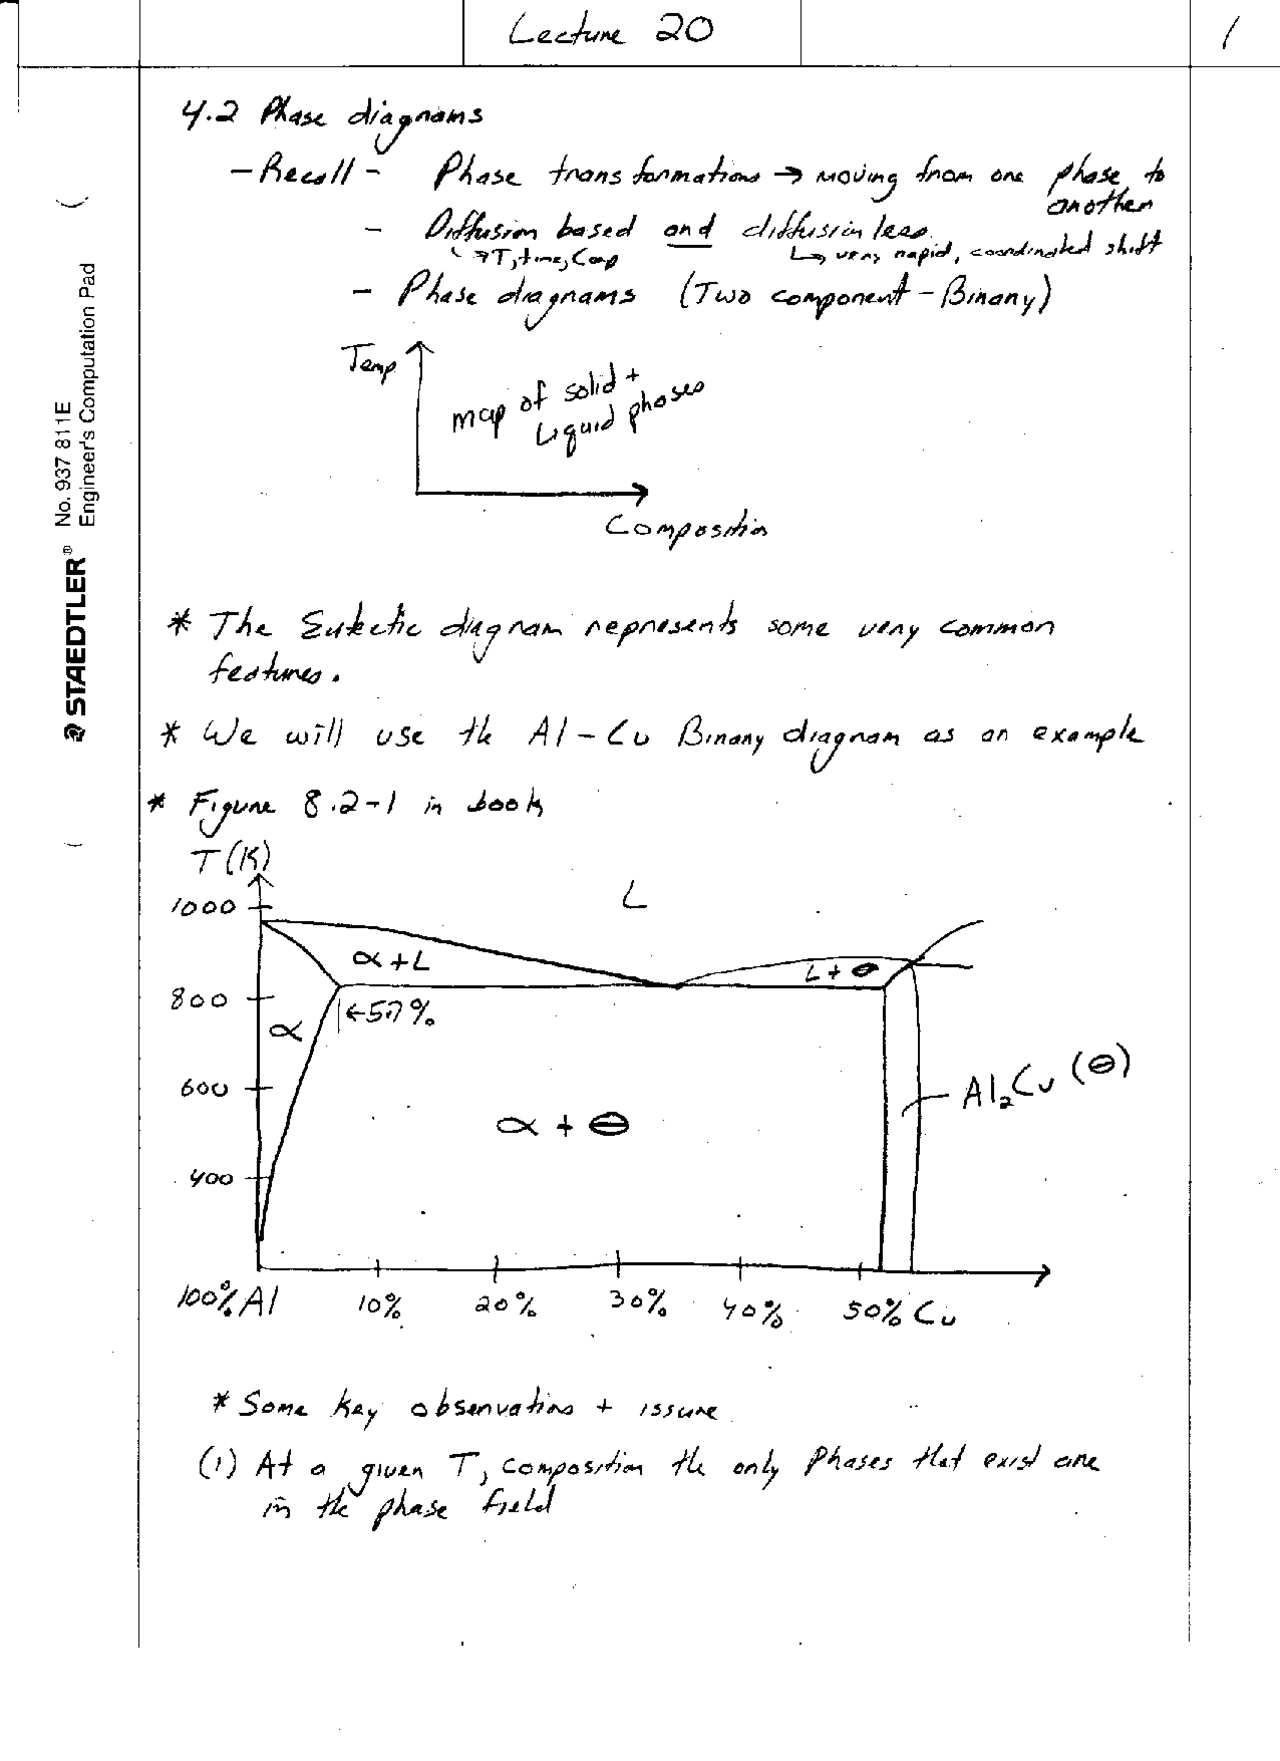 Lecture 20
1
4.2 Phase diagrams
- Recall - Phase transformations → moving from one phase to
another
- Diffusion based and diffusionless
↳ T, time, Comp ↳ very rapid, coordinated shift
- Phase diagrams (Two component - Binary)
Temp
map of solid +
Liquid phases
Composition
* The Eutectic diagram represents some very common
features.
* We will use the Al-Cu Binary diagram as an example
* Figure 8.2-1 in book
T(K)
1000
L
α+L
L+Θ
800
←5.7%
α
600
Al₂Cu (Θ)
α + Θ
400
100% Al 10% 20% 30% 40% 50% Cu
* Some key observations + issues
(1) At a given T, composition the only phases that exist are
in the phase field
STAEDTLER® No. 937 811E
Engineer's Computation Pad